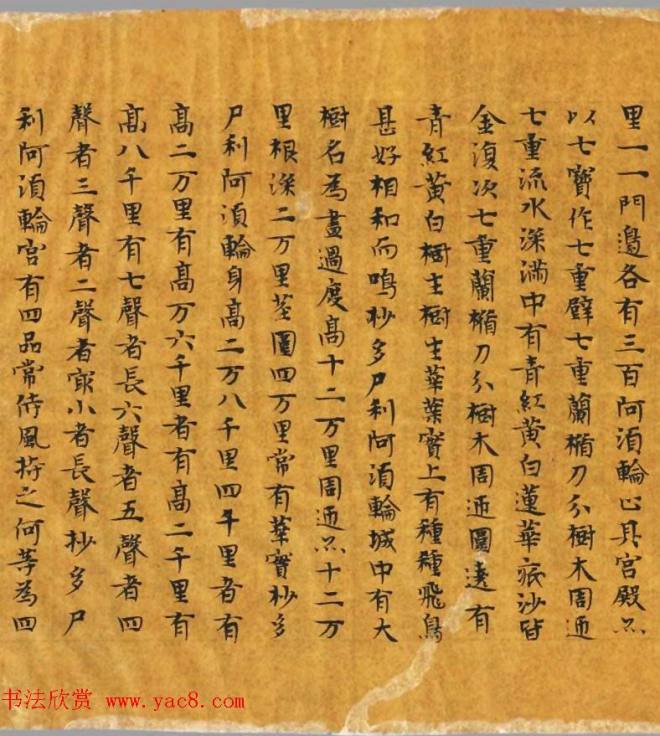 里一一門邊各有三百阿湏輪止其宮殿亦
以七寶作七重壁七重蘭楯刀分樹木周迊
七重流水深滿中有青紅黃白蓮華底沙皆
金復次七重蘭楯刀分樹木周迊圍遶有
青紅黃白樹生樹生華葉實上有種種飛鳥
甚好相和而鳴抄多尸利阿湏輪城中有大
樹名為晝過度高十二万里周迊亦十二万
里根深二万里莖圍四万里常有華實抄多
尸利阿湏輪身高二万八千里四千里者有
高二万里有高万六千里者有高二千里有
高八千里有七聲者長六聲者五聲者四
聲者三聲者二聲者㝡小者長聲抄多尸
利阿湏輪宮有四品常侍風持之何等為四
书法欣赏 www.yac8.com